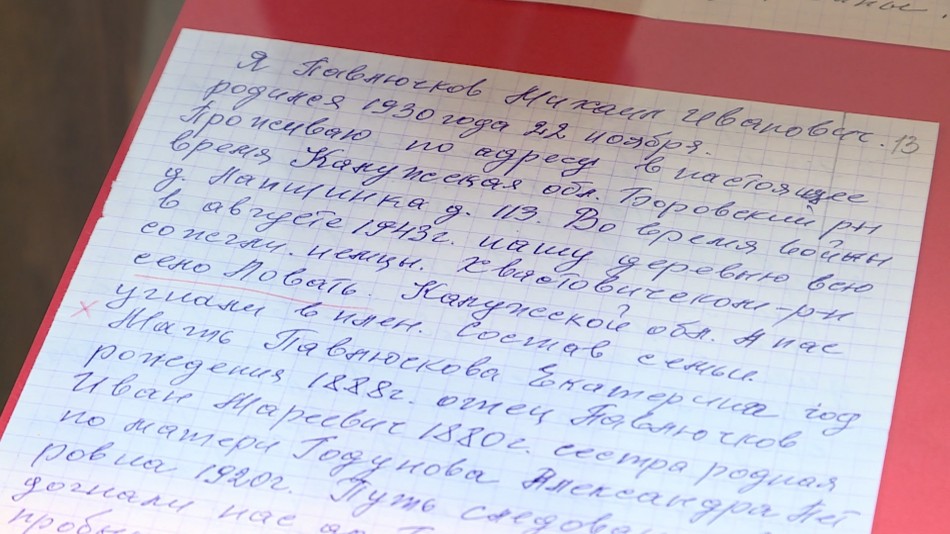 Я Павлючков Михаил Иванович. 13
родился 1930 года 22 ноября.
Проживаю по адресу в настоящее
время Калужская обл. Боровский рн
д. Лапшинка д. 113. Во время войны
в августе 1943г. нашу деревню всю
сожгли. немцы. Хвастовичском-рн
село Ловать. Калужсской обл. А нас
угнали в плен. Состав семьи.
Мать Павлюскова Екатерина год
рождения 1888г. отец Павлючков
Иван 1880г. сестра родная
по матери Годунова Александра Пет
ровна 1920г. Путь
догнали нас до